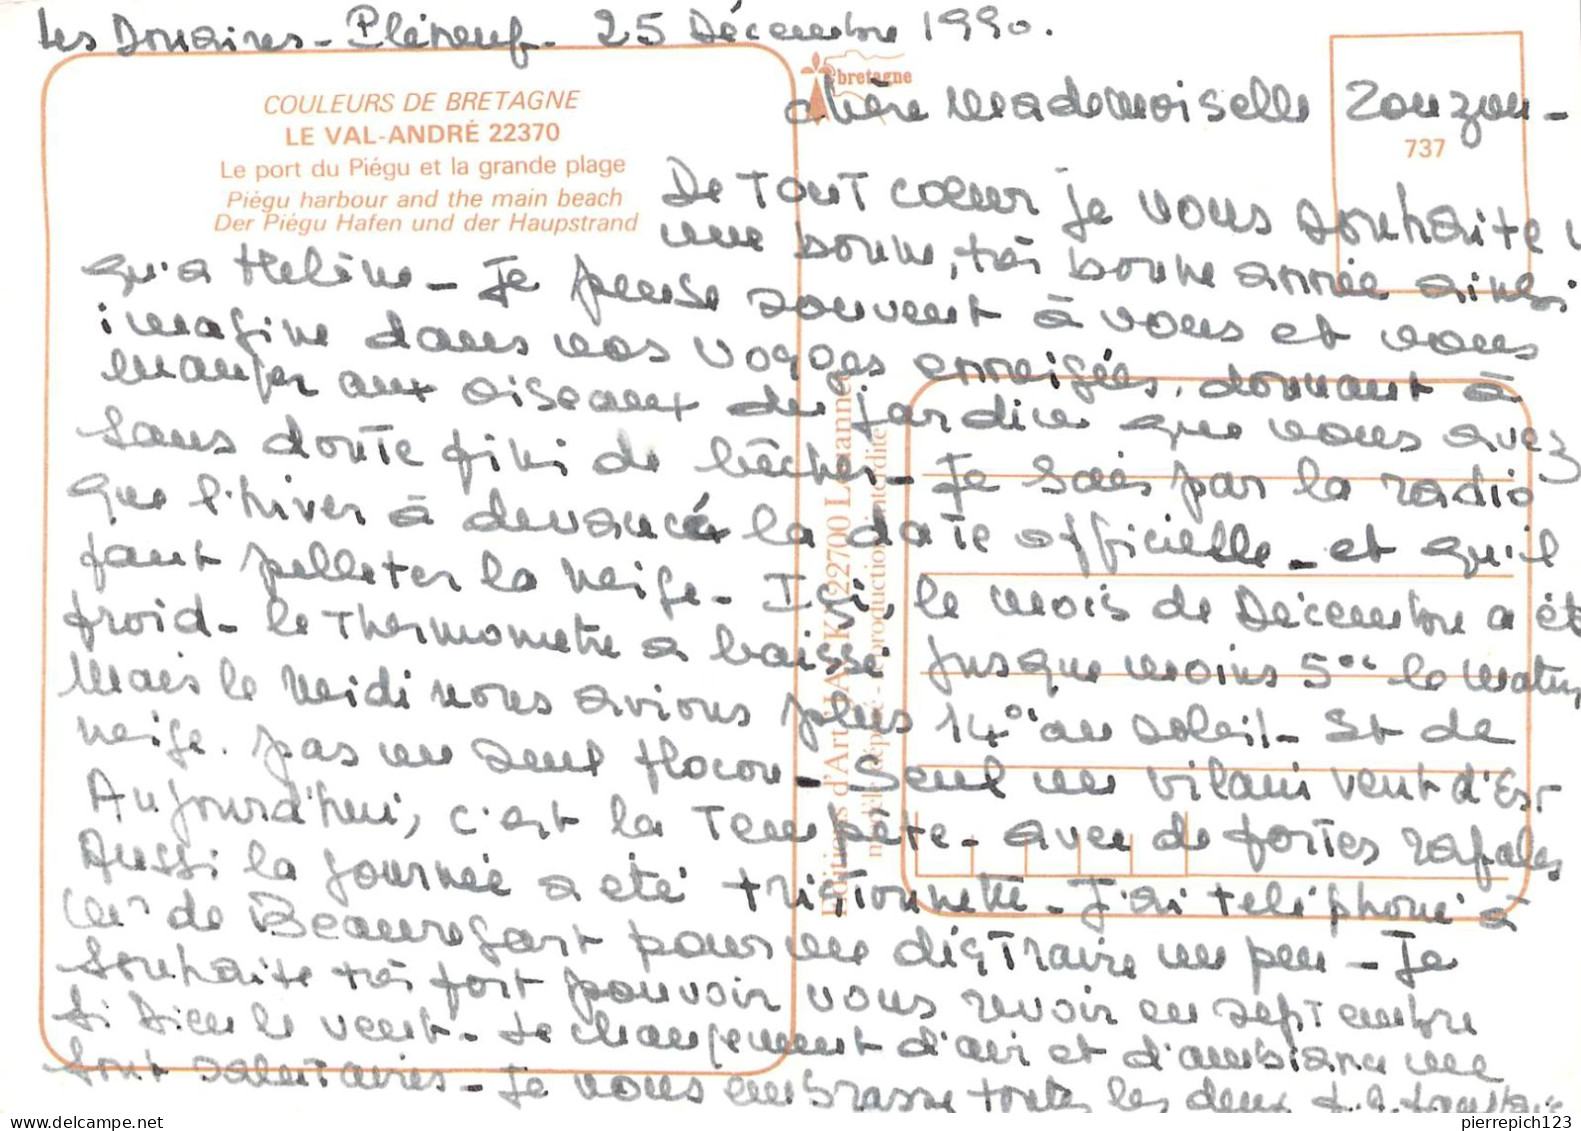 Les Douaires - Pléneuf - 25 Décembre 1990.
bretagne
COULEURS DE BRETAGNE
LE VAL-ANDRÉ 22370
Le port du Piégu et la grande plage
Piégu harbour and the main beach
Der Piégu Hafen und der Haupstrand
737
Chère Mademoiselle Zouzou -
De tout coeur je vous souhaite
une bonne, très bonne année ainsi
qu'à Hélène - Je pense souvent à vous et vous
imagine dans vos voyages enneigées, donnant à
manger aux oiseaux du jardin que vous avez
sans doute fini de bêcher - Je sais par la radio
que l'hiver à devancé la date officielle - et qu'il
faut pelleter la neige - Ici, le mois de Décembre a été
froid - le Thermometre a baissé jusque moins 5° le matin,
Mais le midi nous avions plus 14° au soleil - Et de
neige, pas un seul flocon - Seul un vilain vent d'Est
Aujourd'hui, c'est la Tempête - avec de fortes rafales
Aussi la journée a été tristounette - J'ai téléphoné à
de Beauregart pour me distraire un peu - Je
souhaite très fort pouvoir vous revoir en septembre
si Dieu le veut - Le changement d'air et d'ambiance me
sont salutaires - Je vous embrasse toutes les deux
Editions d'Art JACK 22700 Louannec
modèle déposé - reproduction interdite
pierrepich123